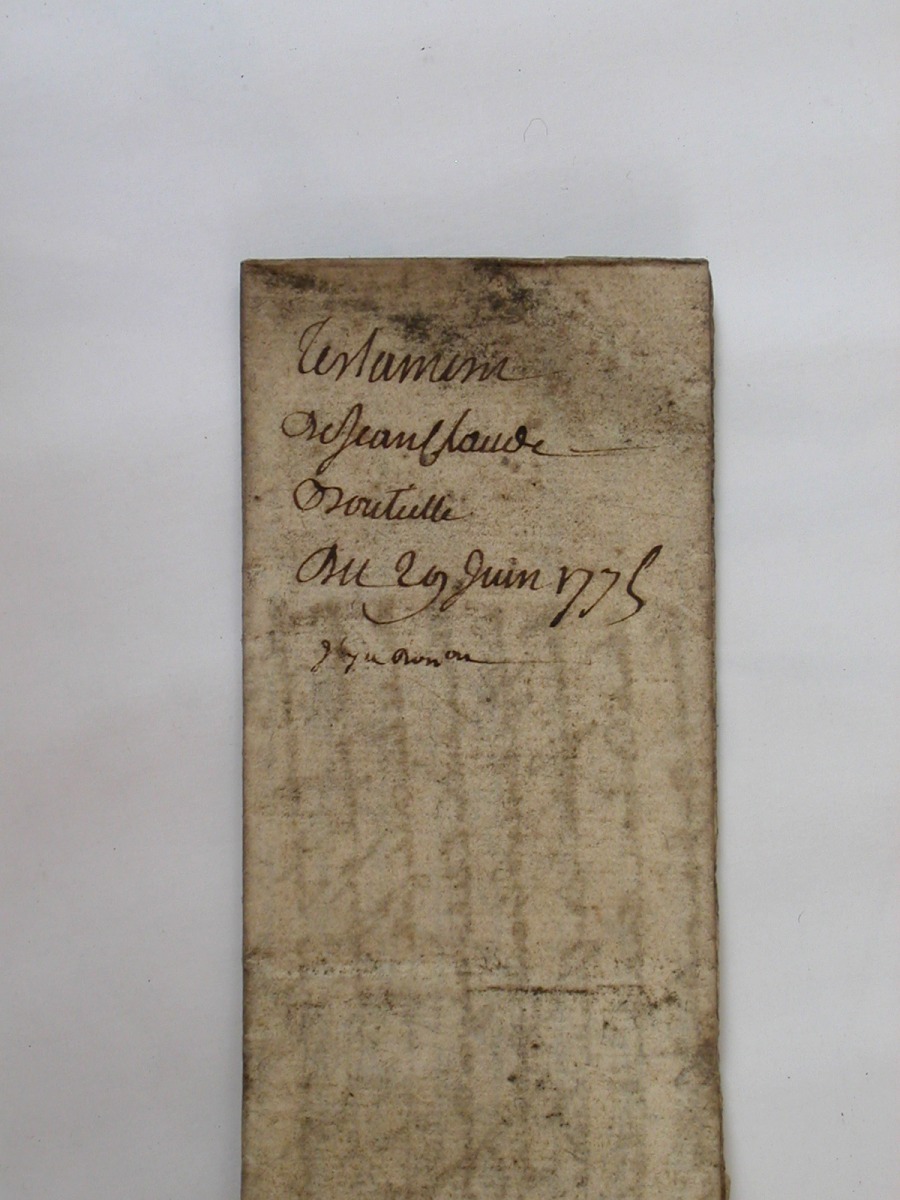 Testament
De Jean Claude
Bouteille
Du 29 Juin 1775